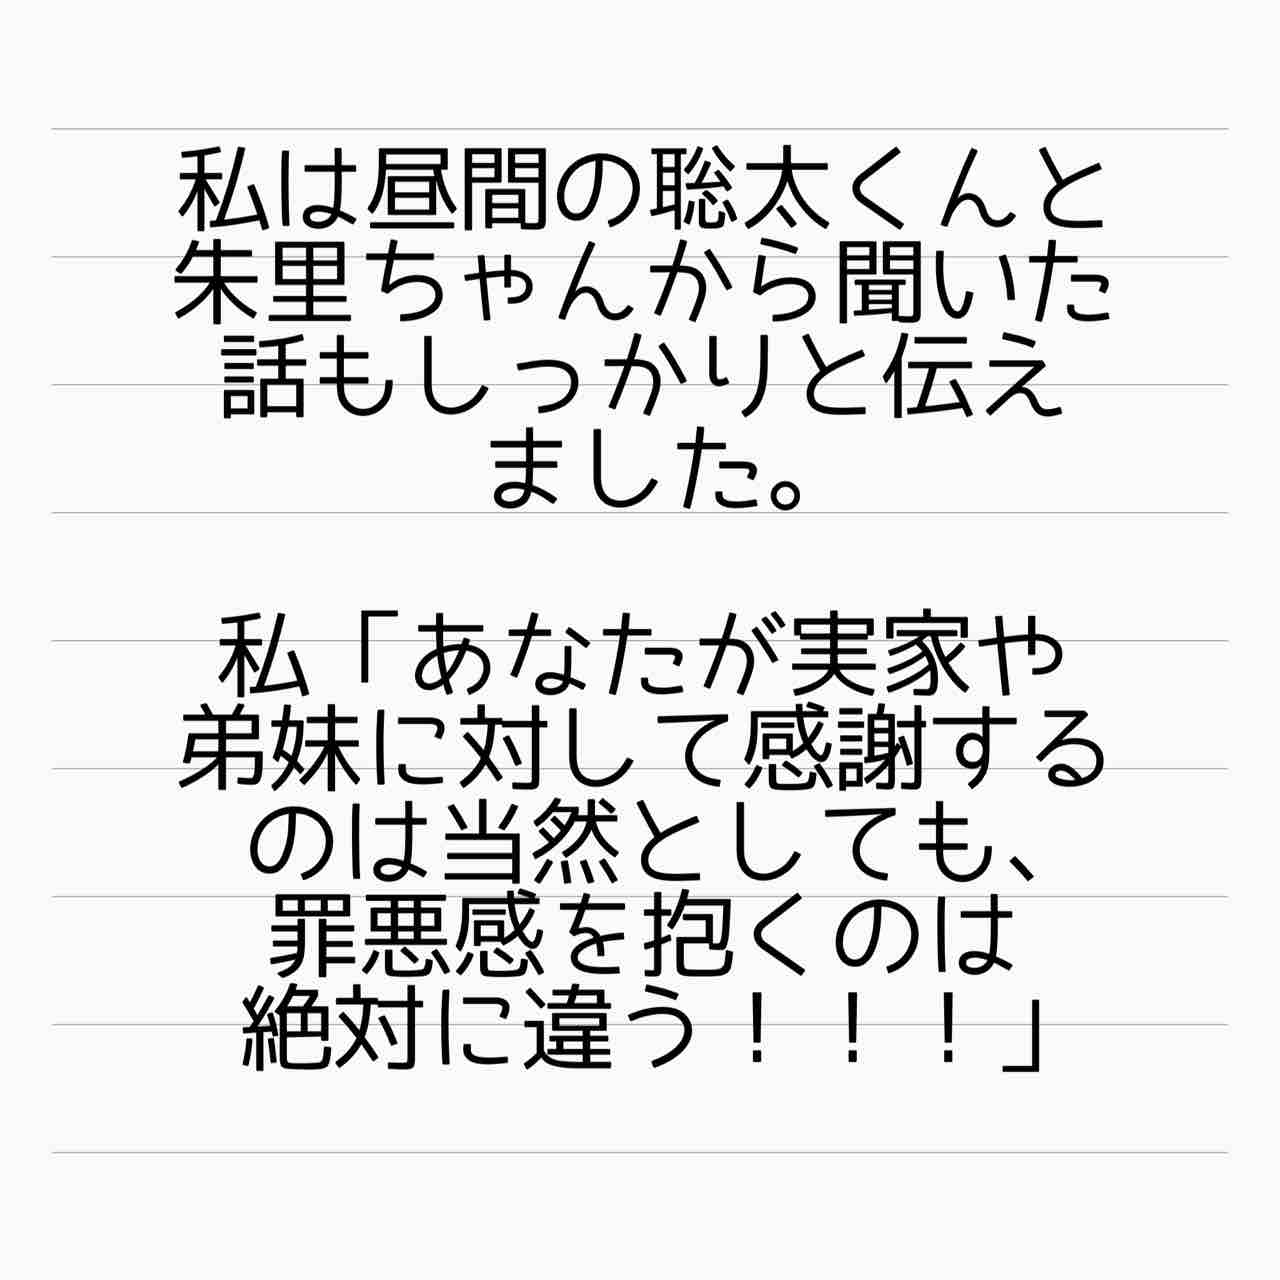 私は昼間の聡太くんと
朱里ちゃんから聞いた
話もしっかりと伝え
ました。
私「あなたが実家や
弟妹に対して感謝する
のは当然としても、
罪悪感を抱くのは
絶対に違う！！！」